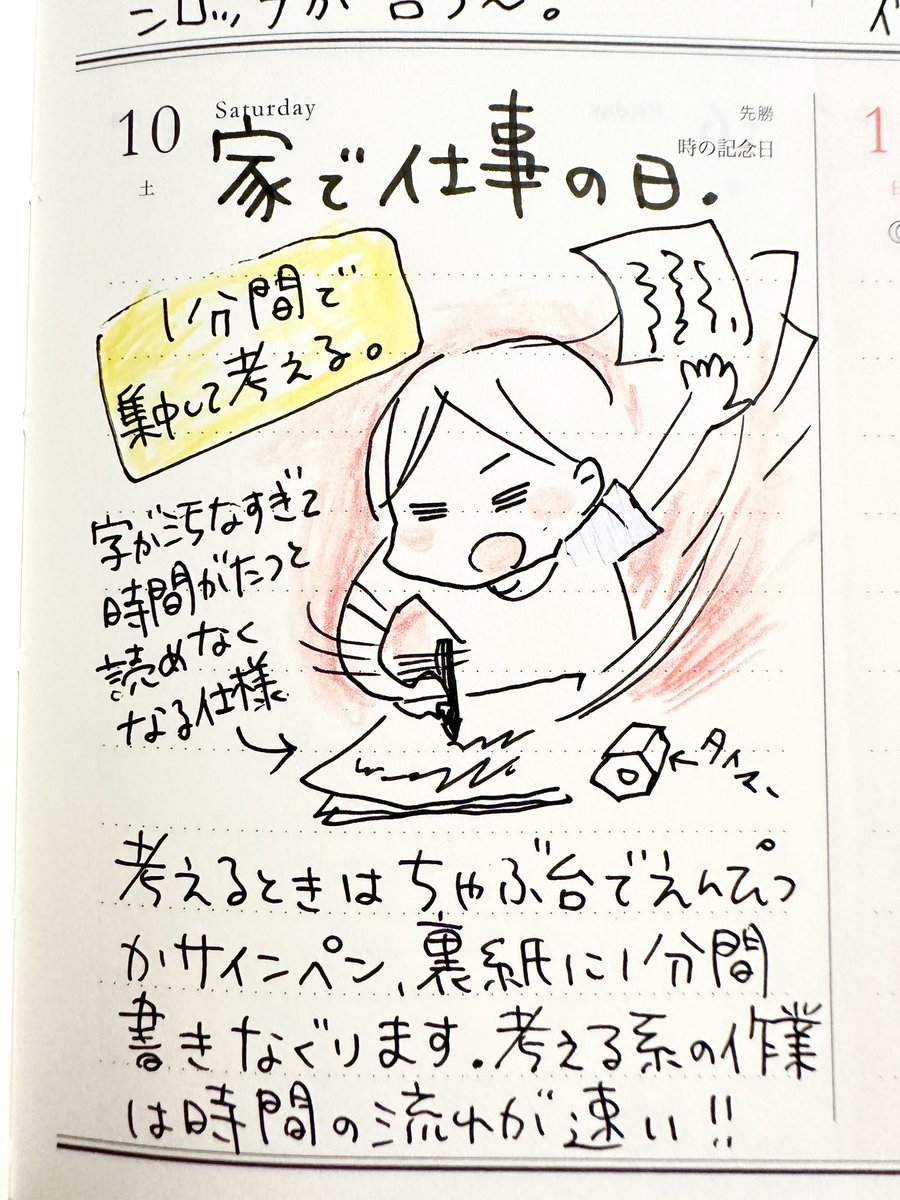 10
Saturday
土
先勝
時の記念日
家で仕事の日.
1分間で
集中して考える。
字が汚なすぎて
時間がたつと
読めなく
なる仕様
タイマー
考えるときはちゃぶ台でえんぴつ
かサインペン、裏紙に1分間
書きなぐります.考える系の作業
は時間の流れが速い!!